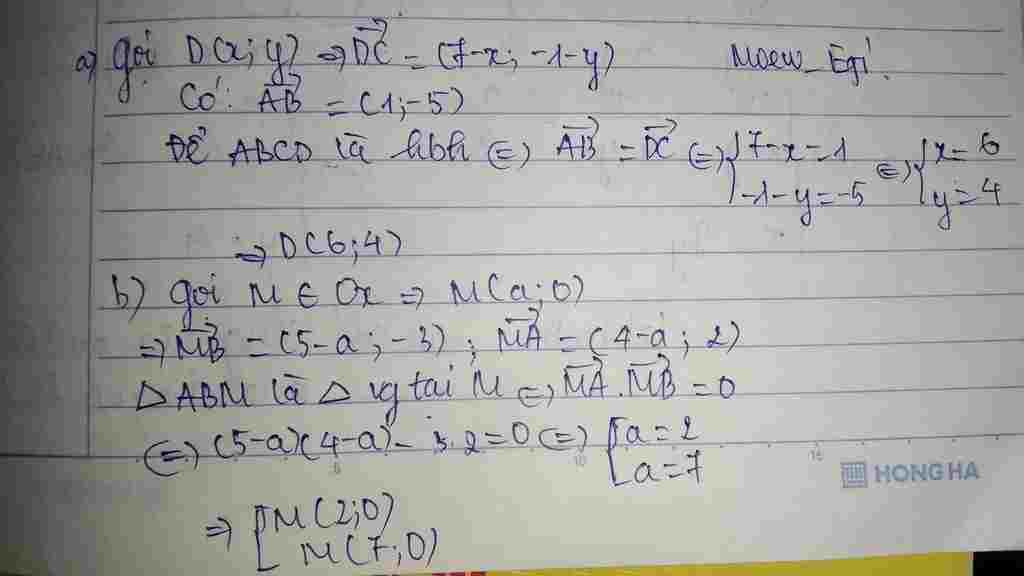 a) gọi D(x; y) ⇒ \overrightarrow{DC} = (7-x; -1-y) Moew_Egi!
Có: \overrightarrow{AB} = (1; -5)
Để ABCD là hbh ⇔ \overrightarrow{AB} = \overrightarrow{DC} ⇔ { 7-x=1 ; -1-y=-5 ⇔ { x=6 ; y=4
⇒ D(6; 4)
b) gọi M ∈ Ox ⇒ M(a; 0)
⇒ \overrightarrow{MB} = (5-a; -3); \overrightarrow{MA} = (4-a; 2)
△ABM là △ vg tại M ⇔ \overrightarrow{MA}.\overrightarrow{MB} = 0
⇔ (5-a)(4-a) - 3.2 = 0 ⇔ [ a=2 ; a=7
5 10 15
HONG HA
⇒ [ M(2; 0) ; M(7; 0)